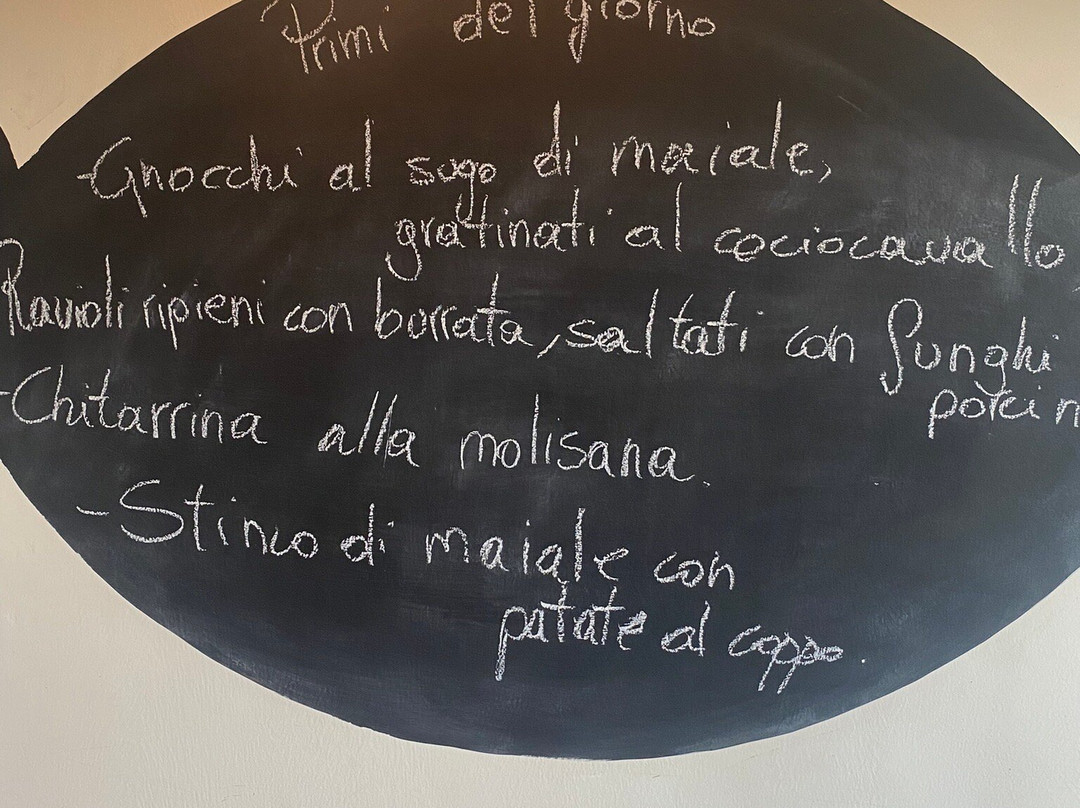 Primi del giorno
-Gnocchi al sugo di maiale,
gratinati al caciocavallo
Ravioli ripieni con burrata, saltati con funghi
porcin
-Chitarrina alla molisana.
-Stinco di maiale con
patate al coppo.